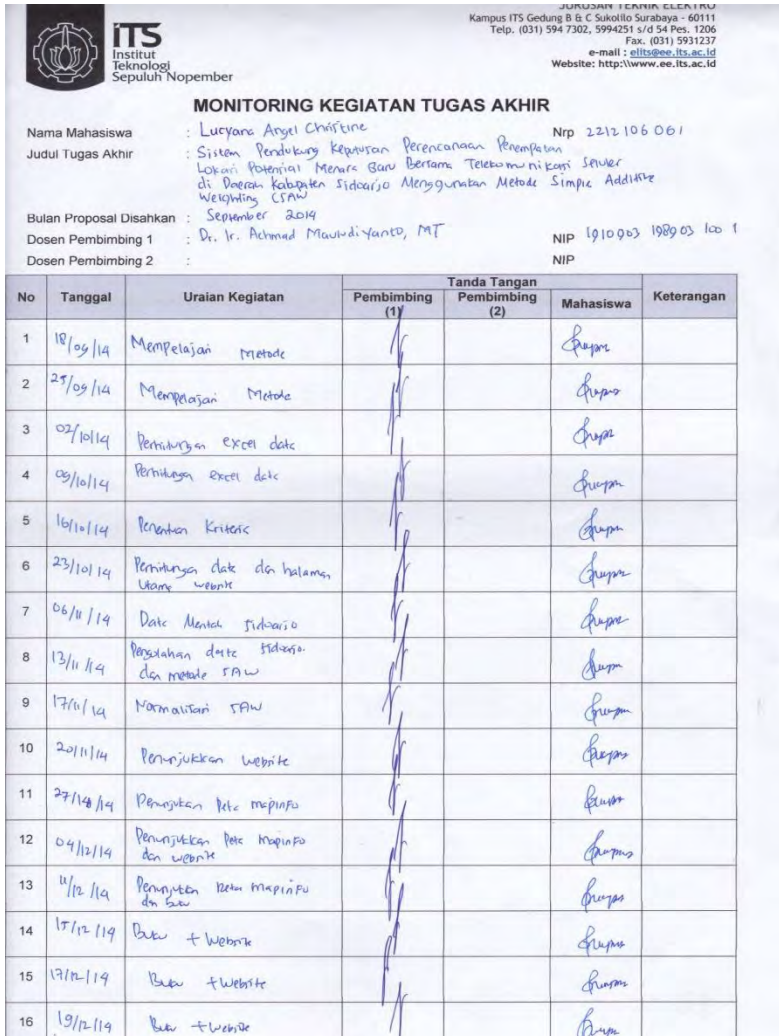 JURUSAN TEKNIK ELEKTRO
Kampus ITS Gedung B & C Sukolilo Surabaya - 60111
Telp. (031) 594 7302, 5994251 s/d 54 Pes. 1206
Fax. (031) 5931237
e-mail : elits@ee.its.ac.id
Website: http:\\www.ee.its.ac.id
ITS
Institut
Teknologi
Sepuluh Nopember
MONITORING KEGIATAN TUGAS AKHIR
Nama Mahasiswa : Lucyana Angel Christine Nrp 2212106061
Judul Tugas Akhir : Sistem Pendukung Keputusan Perencanaan Penempatan
Lokasi Potensial Menara Baru Bersama Telekomunikasi Seluler
di Daerah Kabupaten Sidoarjo Menggunakan Metode Simple Additive
Weighting (SAW)
Bulan Proposal Disahkan : September 2014
Dosen Pembimbing 1 : Dr. Ir. Achmad Mauludiyanto, MT NIP 1910903 198903 100 1
Dosen Pembimbing 2 : NIP
No Tanggal Uraian Kegiatan Tanda Tangan Keterangan
Pembimbing (1) Pembimbing (2) Mahasiswa
1 18/09/14 Mempelajari Metode
2 25/09/14 Mempelajari Metode
3 02/10/14 Perhitungan excel data
4 09/10/14 Perhitungan excel data
5 16/10/14 Penentuan Kriteria
6 23/10/14 Perhitungan data dan halaman
Utama website
7 06/11/14 Data Mentah Sidoarjo
8 13/11/14 Pengolahan data Sidoarjo
dan metode SAW
9 17/11/14 Normalisasi SAW
10 20/11/14 Penunjukkan website
11 27/ /14 Penunjukan Peta mapinfo
12 04/12/14 Penunjukkan Peta mapinfo
dan website
13 11/12/14 Penunjukan Peta mapinfo
dan buku
14 15/12/14 Buku + Website
15 17/12/14 Buku + Website
16 19/12/14 Buku + Website